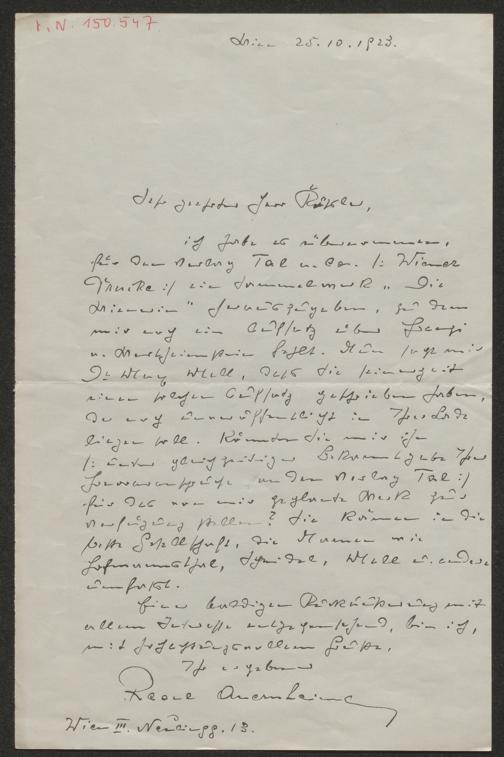 I.N. 150.547
Wien 25.10.1923.
Sehr geehrter Herr
ich habe es übernommen,
für den Verlag Tal u. Co. /: Wiener
Drucke :/ ein Sammelwerk „Die
Wienerin" herauszugeben, zu dem
mir noch ein Aufsatz über
u. fehlt. Nun sagt mir
Dr. Well, daß Sie seinerzeit
einen solchen Aufsatz geschrieben haben,
der noch unveröffentlicht in Ihrer Lade
liegen soll. Könnten Sie mir ihn
/: unter gleichzeitiger Bekanntgabe Ihrer
Honoraransprüche an den Verlag Tal :/
für das von mir geplante Werk zur
Verfügung stellen? Sie kämen in die
beste Gesellschaft, die Namen wie
Hofmannsthal, u. andere
umfaßt.
Einer baldigen Rückäußerung mit
allem Interesse entgegensehend, bin ich,
mit hochachtungsvollem Gruße,
Ihr ergebener
Raoul Auernheimer
Wien III. Neulingg. 13.